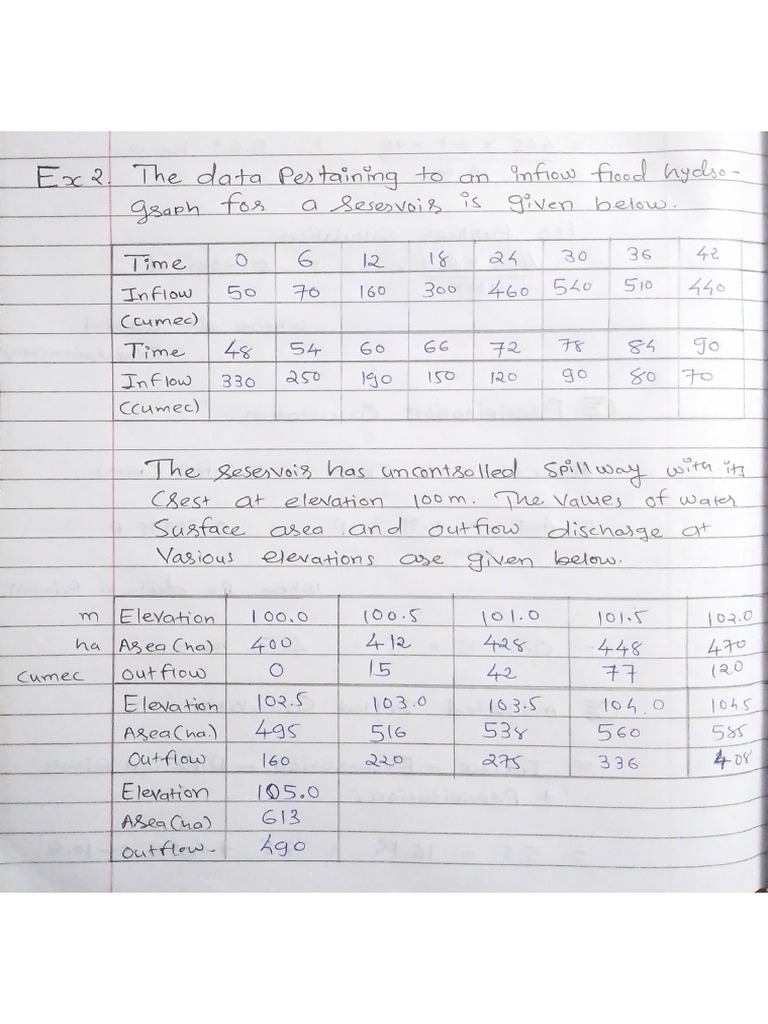 Ex 2. The data Pertaining to an inflow flood hydro-
graph for a reservoir is given below.
Time 0 6 12 18 24 30 36 42
Inflow 50 70 160 300 460 540 510 440
(cumec)
Time 48 54 60 66 72 78 84 90
Inflow 330 250 190 150 120 90 80 70
(cumec)
The reservoir has uncontrolled Spillway with its
Crest at elevation 100m. The values of water
Surface area and outflow discharge at
Various elevations are given below.
m Elevation 100.0 100.5 101.0 101.5 102.0
ha Area(ha) 400 412 428 448 470
cumec Outflow 0 15 42 77 120
Elevation 102.5 103.0 103.5 104.0 104.5
Area(ha.) 495 516 538 560 585
Outflow 160 220 275 336 408
Elevation 105.0
Area(ha) 613
Outflow. 490